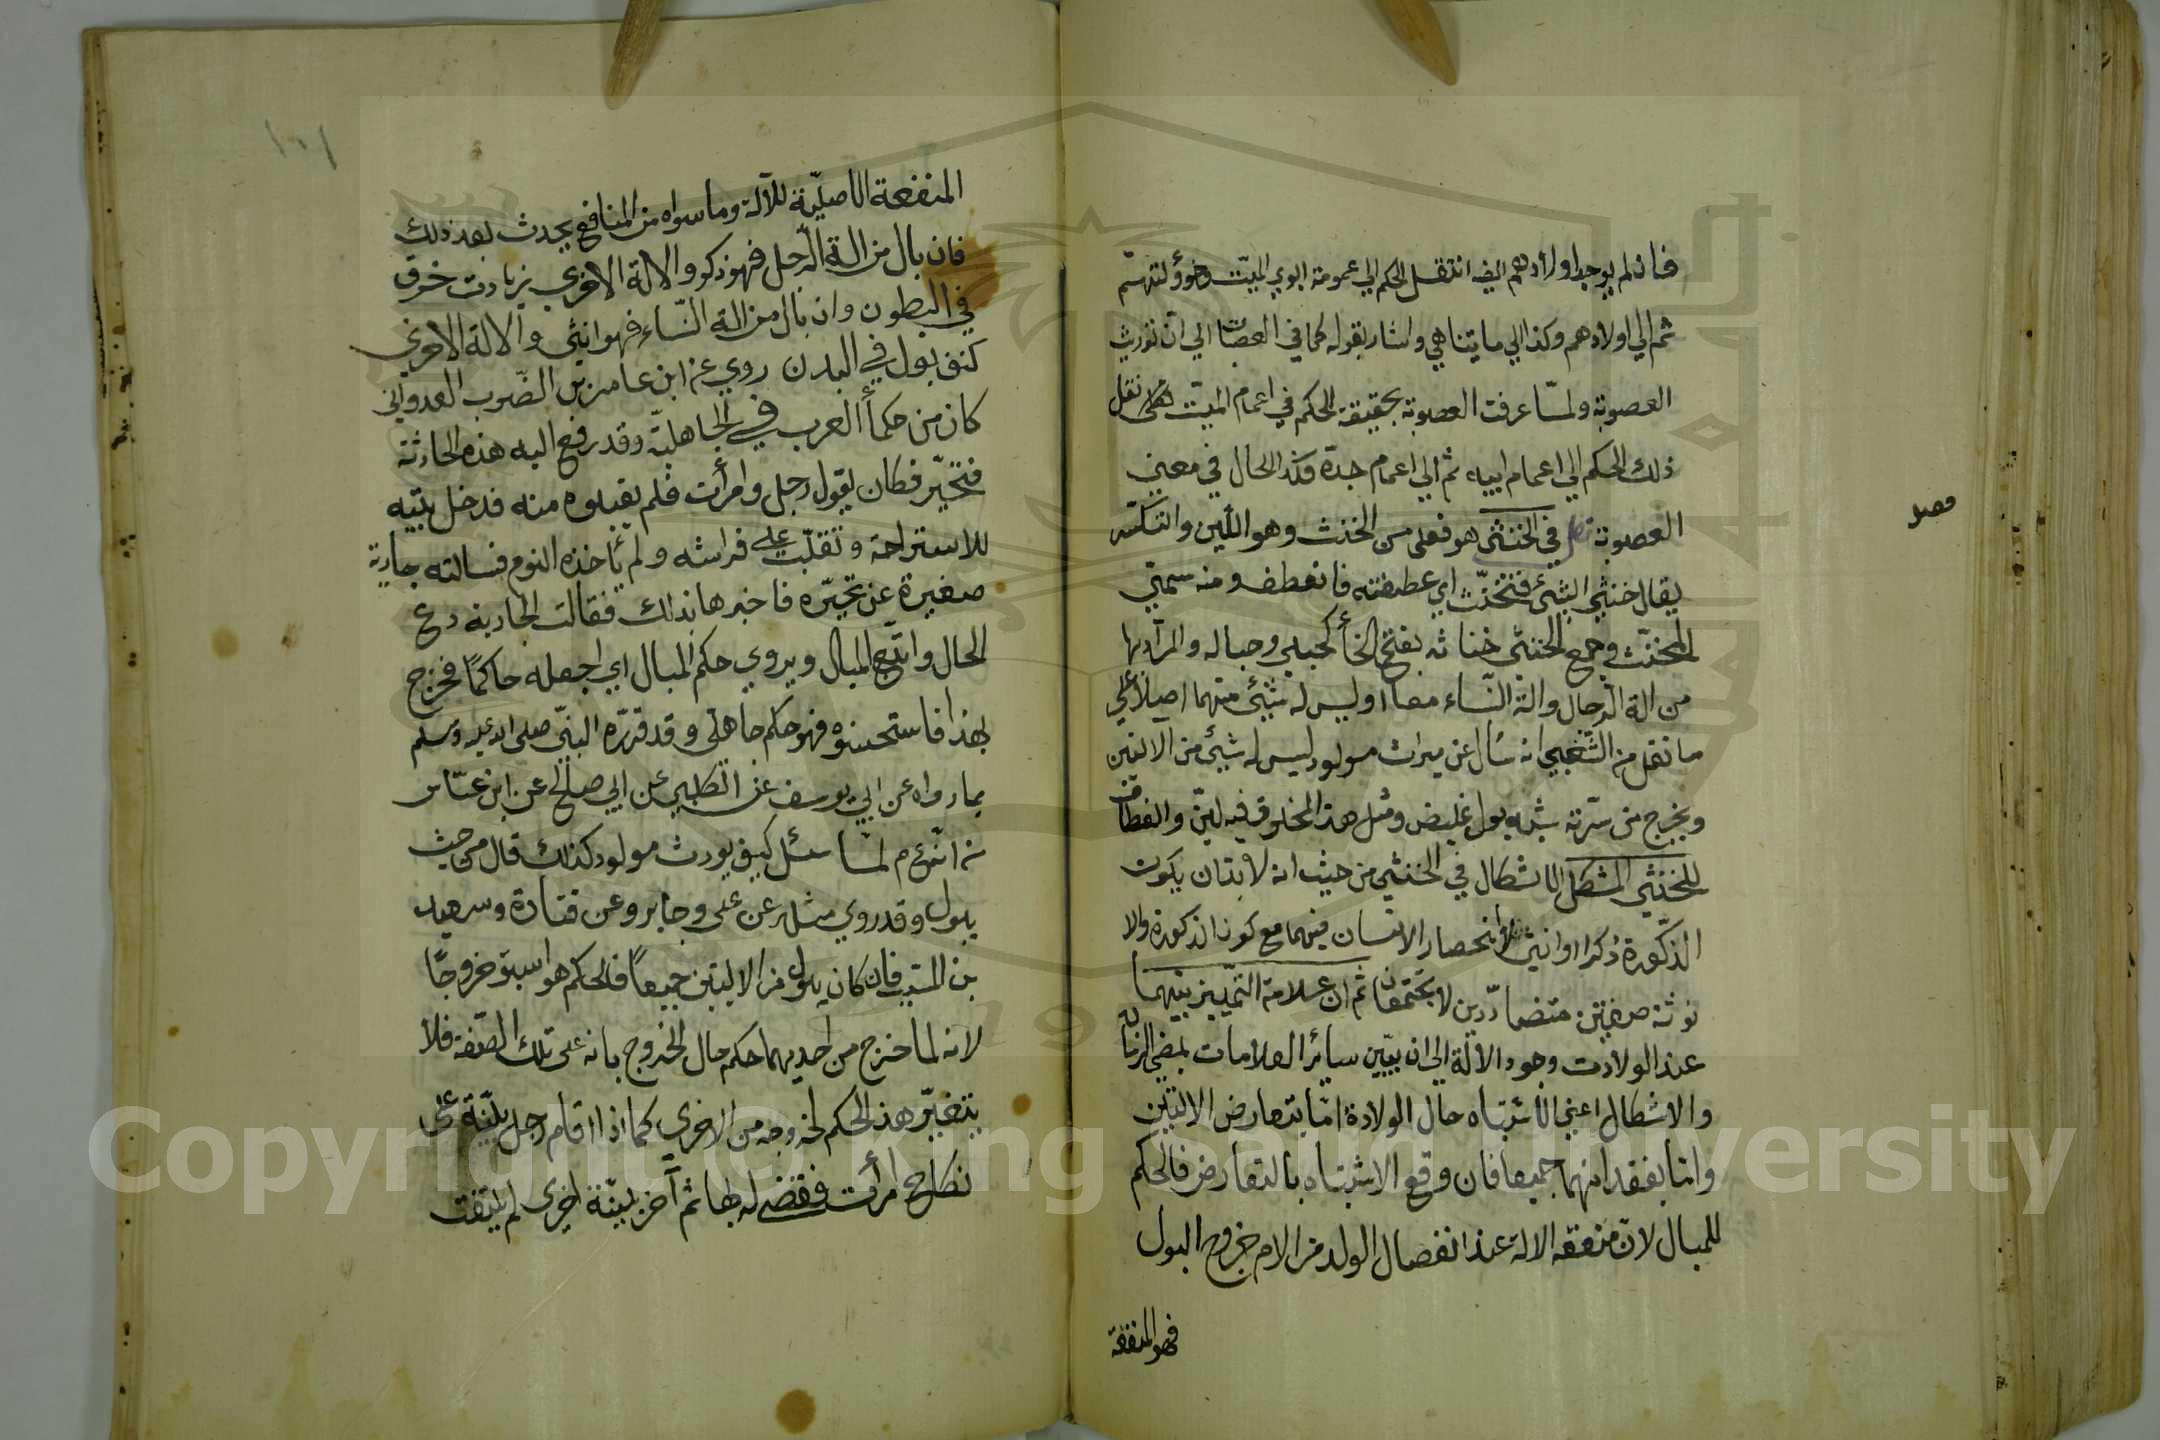 فان لم يوجد اولادهم ايضا انتقل الحكم الي عمومة ابوي الميّت وخؤولتهم
ثم الي اولادهم وكذا الي ما يتناهي واشار بقوله كما في العصبات الي ان توريث
العصوبة ولمّا عرفت العصوبة بحقيقة الحكم في اعمام الميّت نقل
ذلك الحكم الي اعمام ابيه ثم الي اعمام جدّه فكذا الحال في معني
العصوبة فصل في الخنثي هو فعلي من الخنث وهو اللّين والتكسّر
فصل
يقال خنثي الشئ فتخنّث اي عطفته فانعطف ومنه سمّي
المخنّث وجمع الخنثي خناثه بفتح الخأ كحبلي وحباله والمرآد بها
من الة الرّجال والة النّساء معا اوليس له شيئ منهما اصلا علي
ما نقل من الشّعبي انه سئال عن ميراث مولود ليس له شيئ من الالتين
ويخرج من سرّته شبه بول غليض ومثل هذ المخلوق فيه ليّن والعطاف
للخنثي المشكل الاشكال في الخنثي من حيث انه لابدّ ان يكون
الذّكورة ذكرا اوانثي لانحصار الانسان فيهما مع كون الذكورة والا
نوثة صفتين متضادّدين لا يجتمعان ثم ان علامة التميّيز بينهما
عند الولادت وجود الالة الي ان يبيّن سائر العلامات بمضي الزّمان
والاشكال اعني الاشتباه حال الولادة امّا بتعارض الالتين
وامّا بفقدانهما جميعا فان وقع الاشتباه بالتعارض فالحكم
للمبال لانّ منفعة الالة عند انفصال الولد من الام خروج البول
فهو المنفعة
١٠١
المنفعة الاصليّة للآلة وما سواه من المنافع يحدث بعد ذلك
فان بال من الة الرّجل فهو ذكر والالة الاخري زيادت خرق
في البطون وان بال من الة النّساء فهو انثي والالة الاخري
كنف بول في البدن روي عن ابن عامر بن الضّرب العدواني
كان من حكمأ العرب في الجاهليّة وقد رفع اليه هذه الحادثة
فتحيّر فكان يقول رجل وامرأت فلم يقبلوه منه فدخل بيّته
للاستراحة وتقلّب علي فراشه ولم يأخذه النوم فسالته جارية
صغيرة عن تحيّره فاخبرها بذلك فقالت الجارية دع
الحال واتّبع المبال ويروي حكم المبال اي اجعله حاكمًا فخرج
بهذا فاستحسنوه فهو حكم جاهلي وقد قرّره النبيّ صلي الله عليه وسلم
بما رواه عن ابي يوسف عن الكلبي عن ابي صالح عن ابن عبّاس
انّه ع م لمّا سئل كيف يورث مولود كذلك قال من حيث
يبول وقد روي مثله عن علي وجابر وعن قتادة وسعيد
بن المسيّب فان كان يبول من الالتين جميعًا فالحكم هو اسبق خروجًا
لانه لما خرج من احديهما حكم حال الخروج بانه علي تلك الصّفة فلا
يتغيّر هذ الحكم لخروجه من الاخري كما اذا اقام رجل بيّنة علي
نكاح امرأت فقضي له بها ثم آخر بيّنة اخري لم يلتفت
Copyright © King Saud University